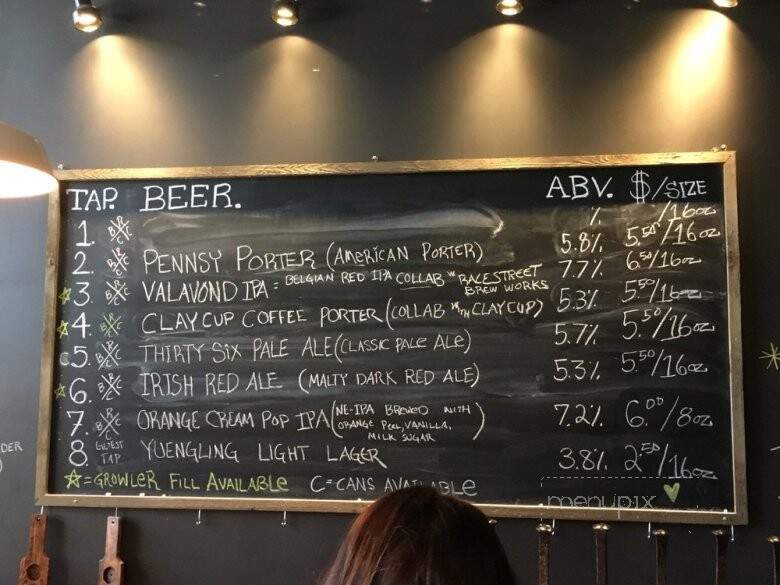 TAP. BEER. ABV. $/SIZE
1. BRXC % /16oz
2. BRXC PENNSY PORTER (AMERICAN PORTER) 5.8% 5.50/16oz
3. BRXC VALAVOND IPA = BELGIAN RED IPA COLLAB W RACESTREET BREW WORKS 7.7% 6.50/16oz
4. BRXC CLAY CUP COFFEE PORTER (COLLAB WITH CLAY CUP) 5.3% 5.50/16oz
C5. BRXC THIRTY SIX PALE ALE (CLASSIC PALE ALE) 5.7% 5.50/16oz
6. BRXC IRISH RED ALE (MALTY DARK RED ALE) 5.3% 5.50/16oz
7. BRXC ORANGE CREAM POP IPA (NE-IPA BREWED WITH ORANGE PEEL, VANILLA, MILK SUGAR) 7.2% 6.00/8oz
8. GUEST TAP YUENGLING LIGHT LAGER 3.8% 2.50/16oz
☆ = GROWLER FILL AVAILABLE C = CANS AVAILABLE
menupix
DER